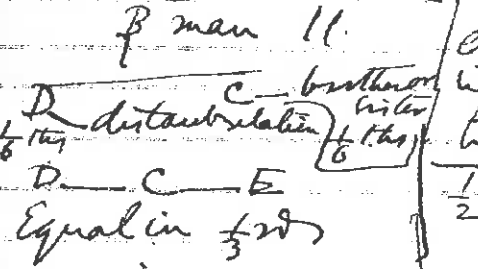 β man 11.
D C — brother or sister
1/6 ths distant relation 1/6 ths
D — C — E
Equal in 1/3 rds
1/2